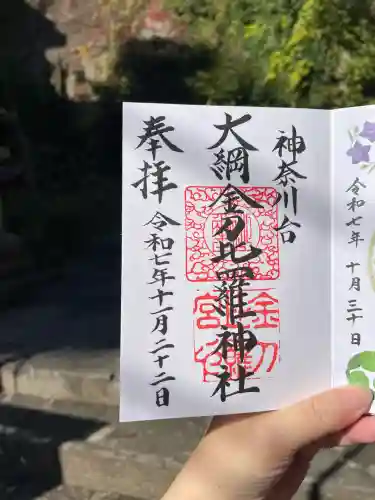 神奈川台
大綱金刀比羅神社
奉拝
令和七年十一月二十二日
令和七年 十月三十日